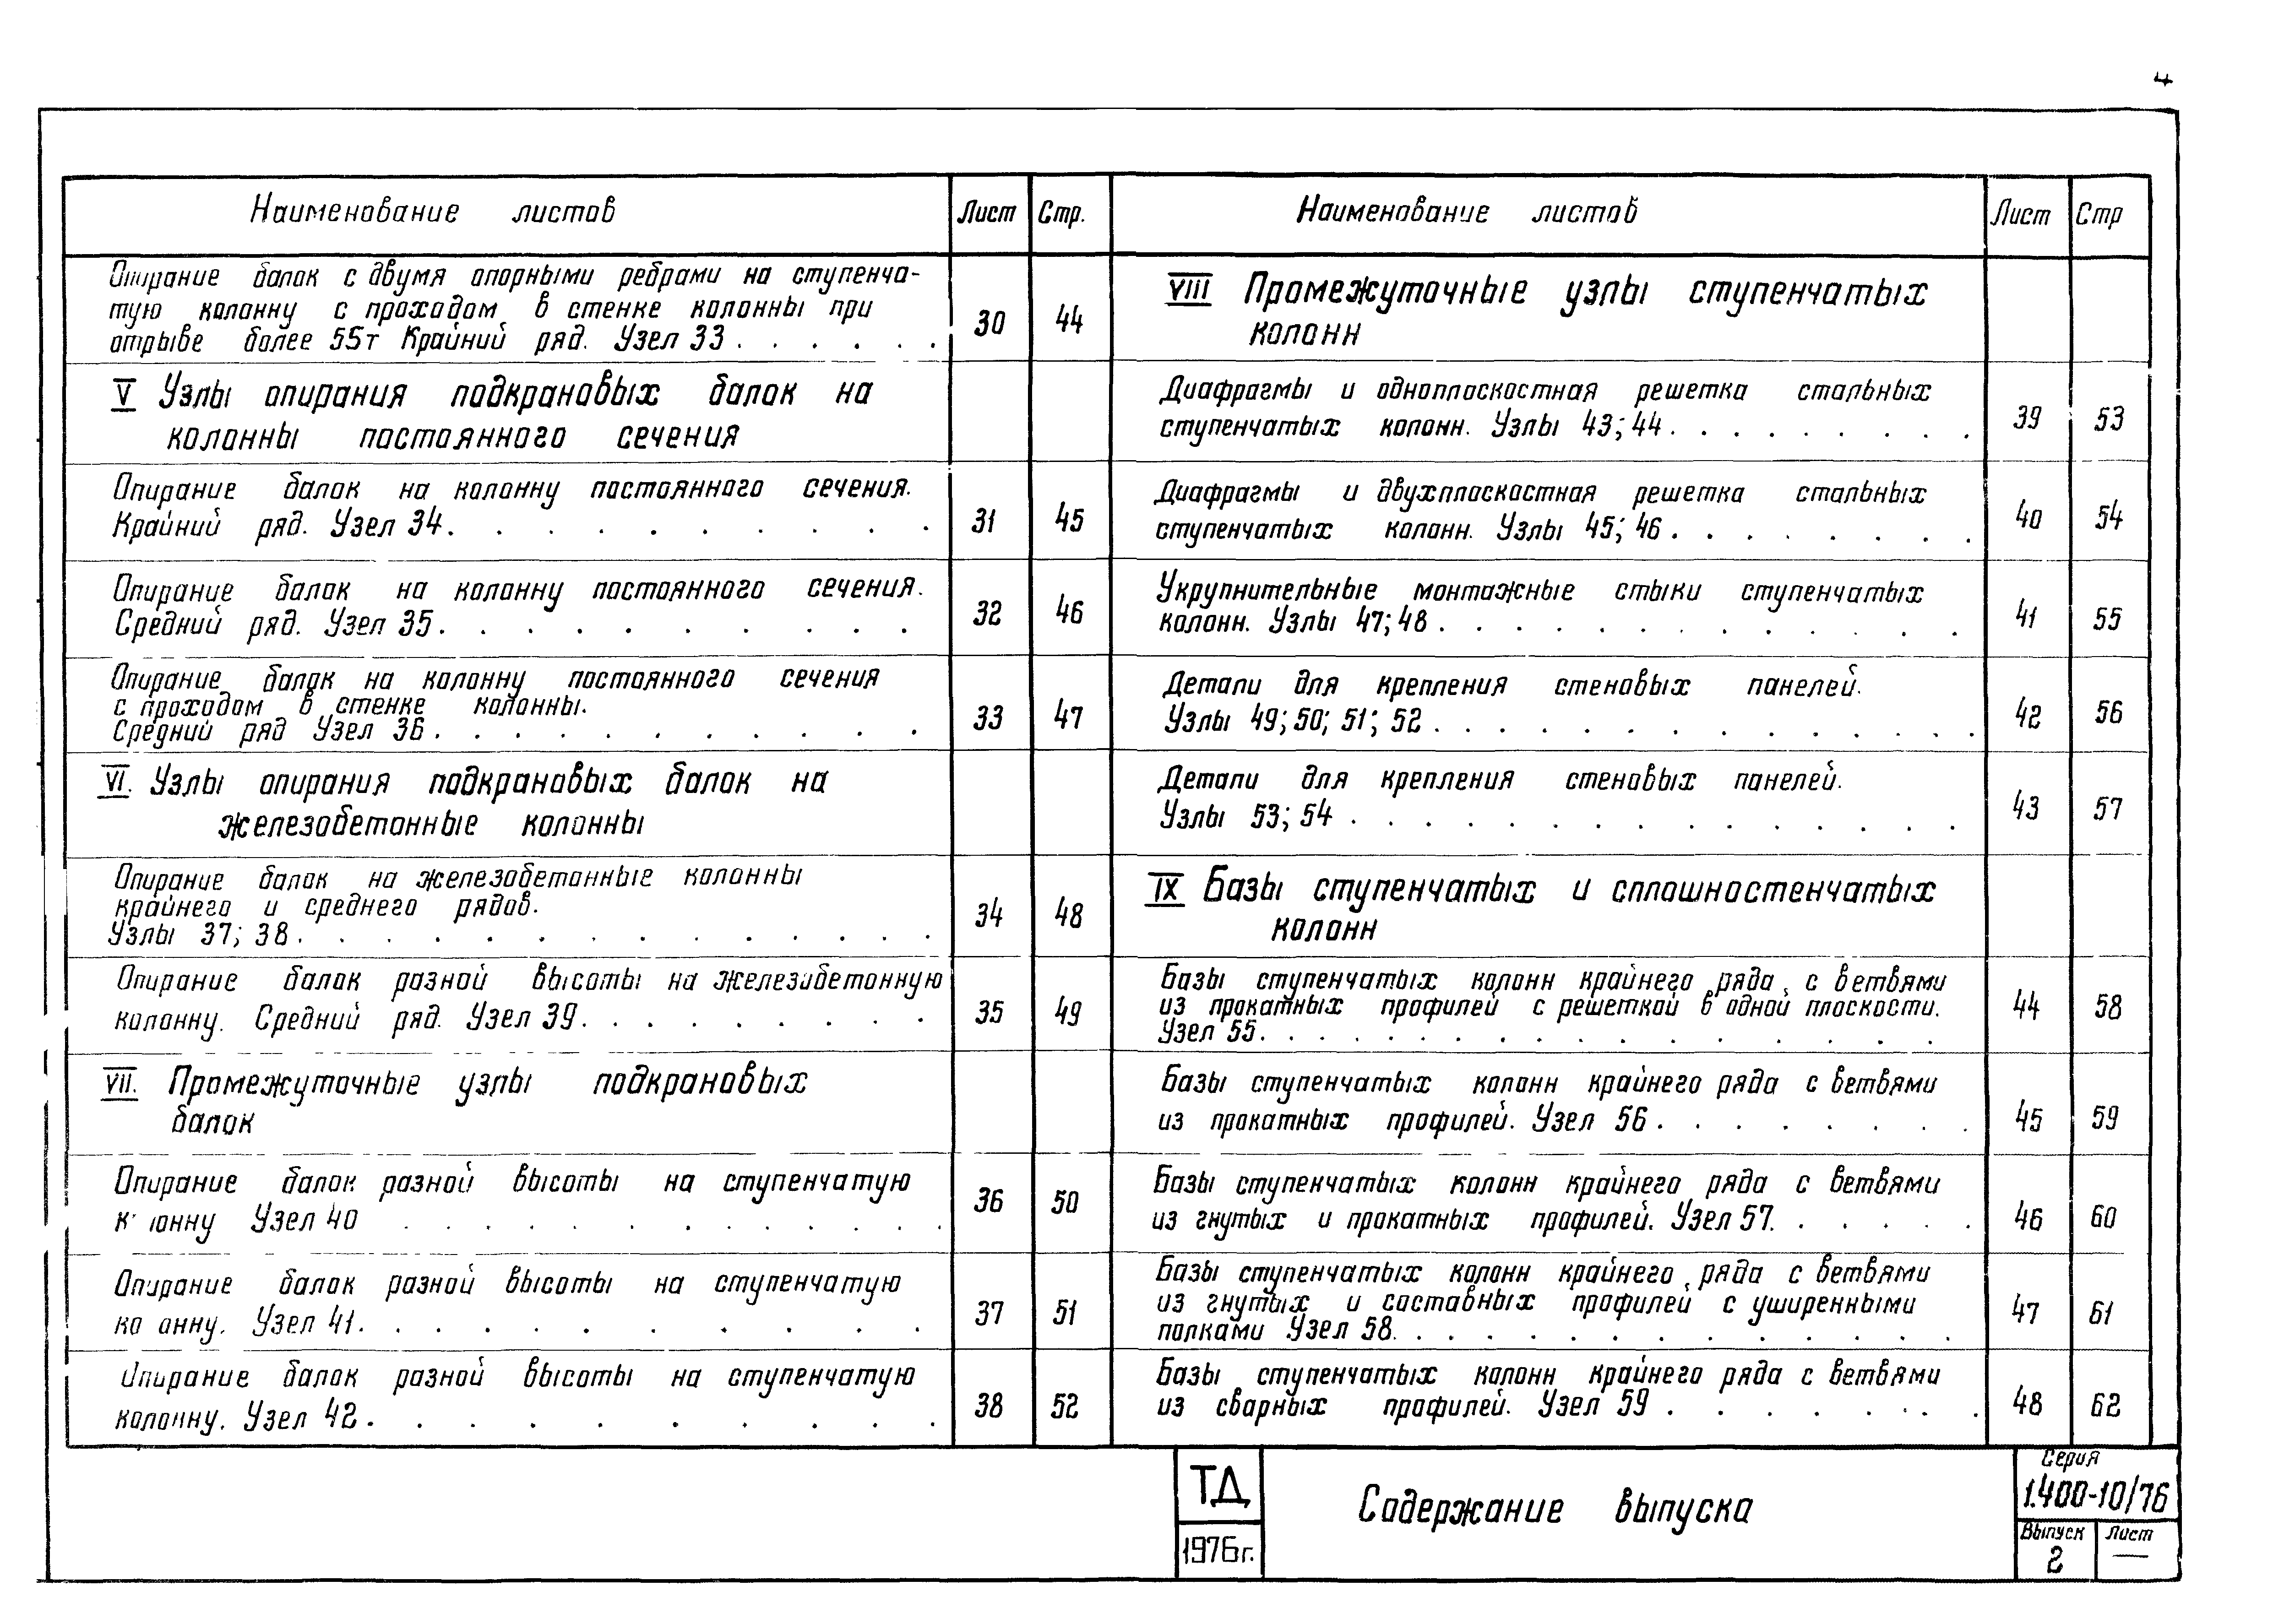 4
Наименование листов Лист Стр.
Опирание балок с двумя опорными ребрами на ступенча-
тую колонну с проходом в стенке колонны при
отрыве более 55т Крайний ряд. Узел 33 . . . . . . 30 44
V Узлы опирания подкрановых балок на
колонны постоянного сечения
Опирание балок на колонну постоянного сечения.
Крайний ряд. Узел 34. . . . . . . . . . 31 45
Опирание балок на колонну постоянного сечения.
Средний ряд. Узел 35. . . . . . . . . . 32 46
Опирание балок на колонну постоянного сечения
с проходом в стенке колонны.
Средний ряд Узел 36. . . . . . . . . . 33 47
VI. Узлы опирания подкрановых балок на
железобетонные колонны
Опирание балок на железобетонные колонны
крайнего и среднего рядов.
Узлы 37; 38. . . . . . . . . . . . . 34 48
Опирание балок разной высоты на железобетонную
колонну. Средний ряд. Узел 39. . . . . . . . . 35 49
VII. Промежуточные узлы подкрановых
балок
Опирание балок разной высоты на ступенчатую
Узел 40 . . . . . . . . . . . 36 50
Опирание балок разной высоты на ступенчатую
Узел 41. . . . . . . . . . 37 51
Опирание балок разной высоты на ступенчатую
колонну. Узел 42. . . . . . . . . . 38 52
Наименование листов Лист Стр
VIII Промежуточные узлы ступенчатых
колонн
Диафрагмы и одноплоскостная решетка стальных
ступенчатых колонн. Узлы 43; 44. . . . . . . . . 39 53
Диафрагмы и двухплоскостная решетка стальных
ступенчатых колонн. Узлы 45; 46. . . . . . . . 40 54
Укрупнительные монтажные стыки ступенчатых
колонн. Узлы 47; 48. . . . . . . . . . . . . 41 55
Детали для крепления стеновых панелей.
Узлы 49; 50; 51; 52. . . . . . . . . . . . . . 42 56
Детали для крепления стеновых панелей.
Узлы 53; 54 . . . . . . . . . . . . . . . . 43 57
IX Базы ступенчатых и сплошностенчатых
колонн
Базы ступенчатых колонн крайнего ряда с ветвями
из прокатных профилей с решеткой в одной плоскости.
Узел 55. . . . . . . . . . . . . . . . 44 58
Базы ступенчатых колонн крайнего ряда с ветвями
из прокатных профилей. Узел 56. . . . . . . . 45 59
Базы ступенчатых колонн крайнего ряда с ветвями
из гнутых и прокатных профилей. Узел 57. . . . . . 46 60
Базы ступенчатых колонн крайнего ряда с ветвями
из гнутых и составных профилей с уширенными
полками Узел 58. . . . . . . . . . . . . 47 61
Базы ступенчатых колонн крайнего ряда с ветвями
из сварных профилей. Узел 59 . . . . . . . . 48 62
ТД
1976г.
Содержание выпуска
Серия
1.400-10/76
Выпуск Лист
2 —